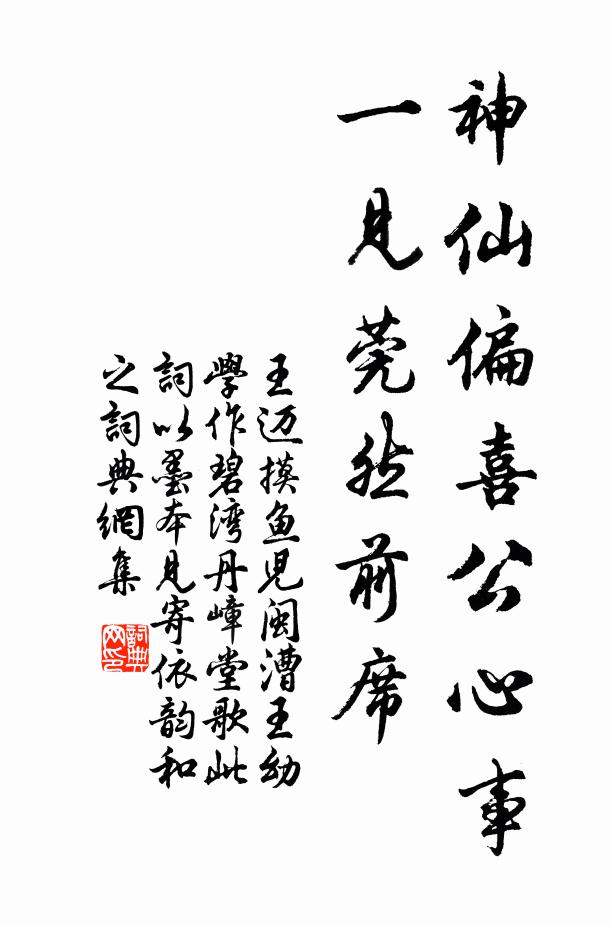 神仙偏喜公心事
一見莞然前席
王迈摸鱼児闽漕王幼
學作碧湾丹嶂堂歌此
詞以墨本見寄依韵和
之詞典網集
詞典
网印